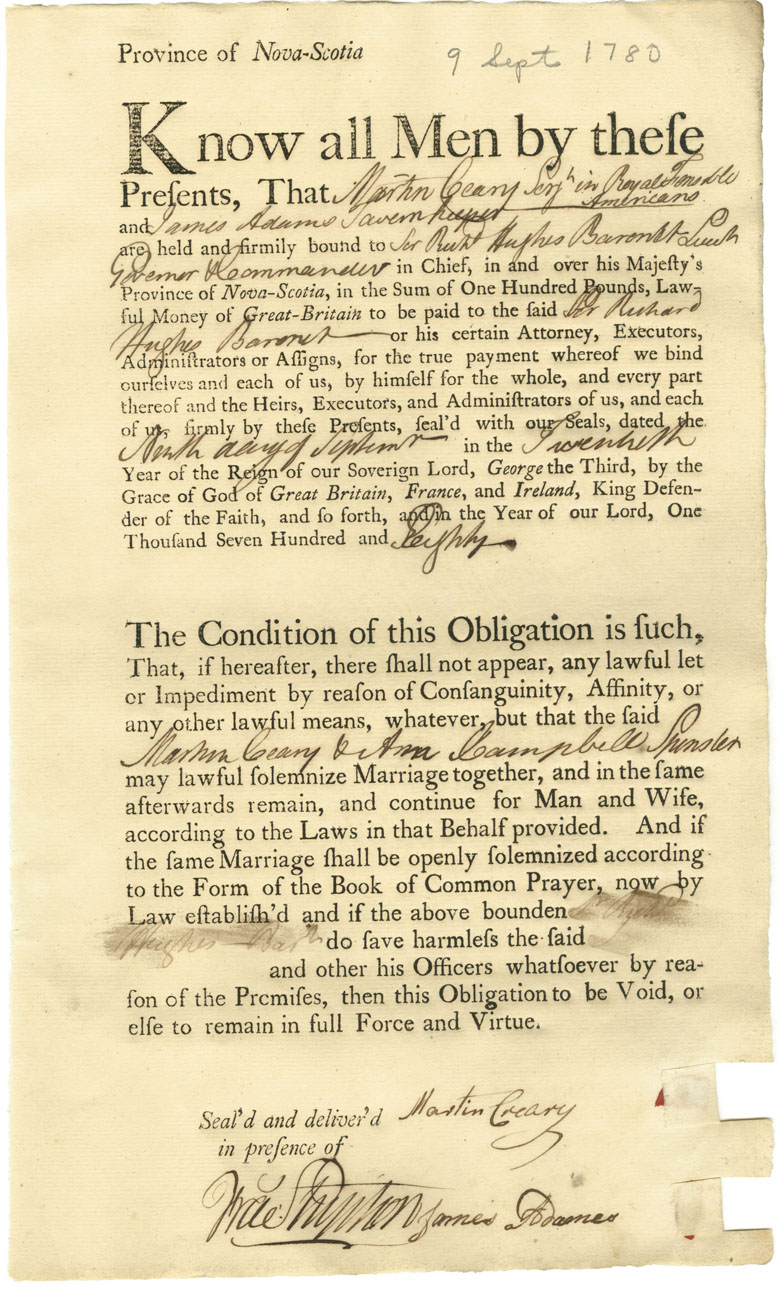 Province of Nova-Scotia
9 Sept 1780
Know all Men by theſe
Preſents, That Martin Ceary Serjt in Royal Fensable
Americans
and James Adams Tavernkeeper
are held and firmily bound to Sir Richd Hughes Baronet Lieut
Governor & Commander in Chief, in and over his Majeſty's
Province of Nova-Scotia, in the Sum of One Hundred Pounds, Law-
ful Money of Great-Britain to be paid to the ſaid Sir Richard
Hughes Baronet or his certain Attorney, Executors,
Adminiſtrators or Aſſigns, for the true payment whereof we bind
ourſelves and each of us, by himſelf for the whole, and every part
thereof and the Heirs, Executors, and Adminiſtrators of us, and each
of us firmly by theſe Preſents, ſeal'd with our Seals, dated the
Ninth day of Septemr in the Twentieth
Year of the Reign of our Soverign Lord, George the Third, by the
Grace of God of Great Britain, France, and Ireland, King Defen-
der of the Faith, and ſo forth, and in the Year of our Lord, One
Thouſand Seven Hundred and Eighty
The Condition of this Obligation is ſuch,
That, if hereafter, there ſhall not appear, any lawful let
or Impediment by reaſon of Conſanguinity, Affinity, or
any other lawful means, whatever, but that the ſaid
Martin Ceary & Ann Campbell Spinster
may lawful ſolemnize Marriage together, and in the ſame
afterwards remain, and continue for Man and Wife,
according to the Laws in that Behalf provided. And if
the ſame Marriage ſhall be openly ſolemnized according
to the Form of the Book of Common Prayer, now by
Law eſtabliſh'd and if the above bounden Sr Richd
Hughes Bart do ſave harmleſs the ſaid
and other his Officers whatſoever by rea-
ſon of the Premiſes, then this Obligation to be Void, or
elſe to remain in full Force and Virtue.
Seal'd and deliver'd Martin Creary
in preſence of
James Adames